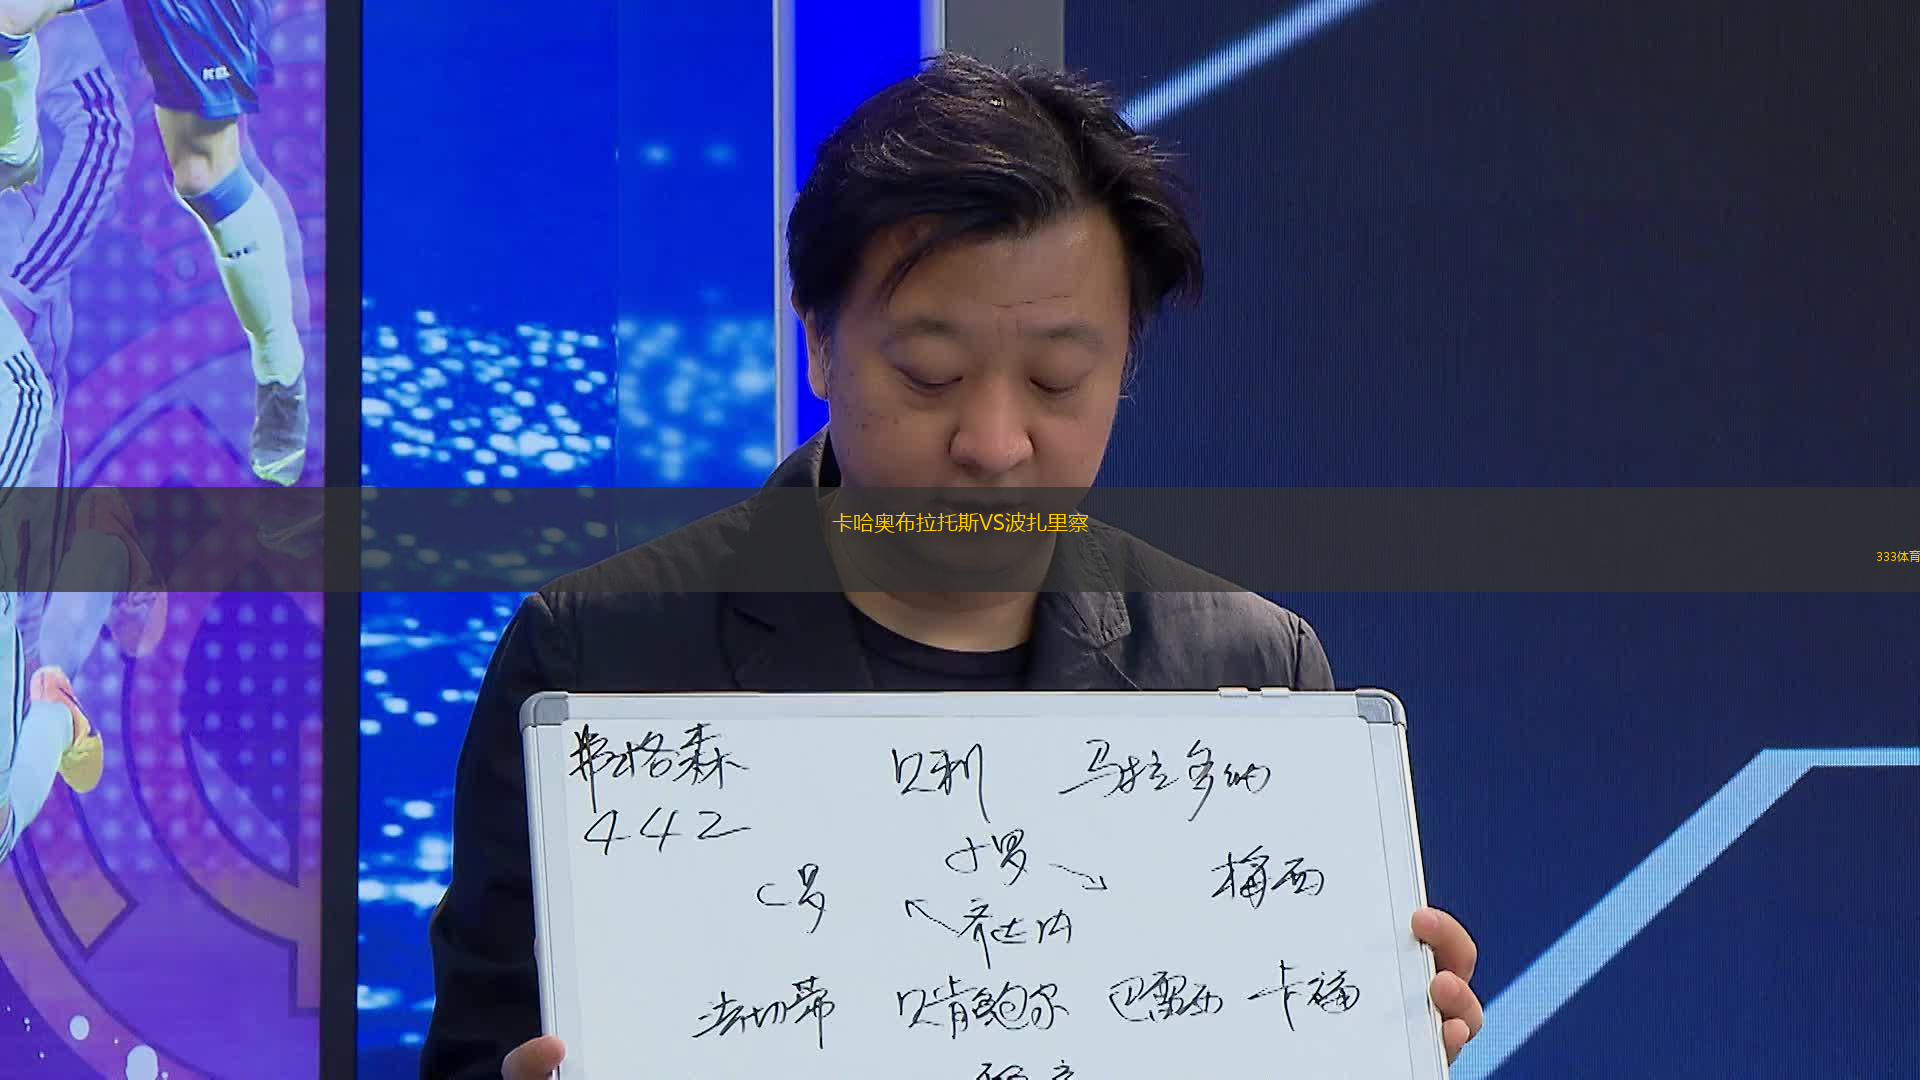 KEL
卡哈奥布拉托斯VS波扎里察
333体育
弗格森 贝利 马拉多纳
442
小罗
C罗 梅西
齐达内
法切蒂 贝肯鲍尔 巴雷西 卡福